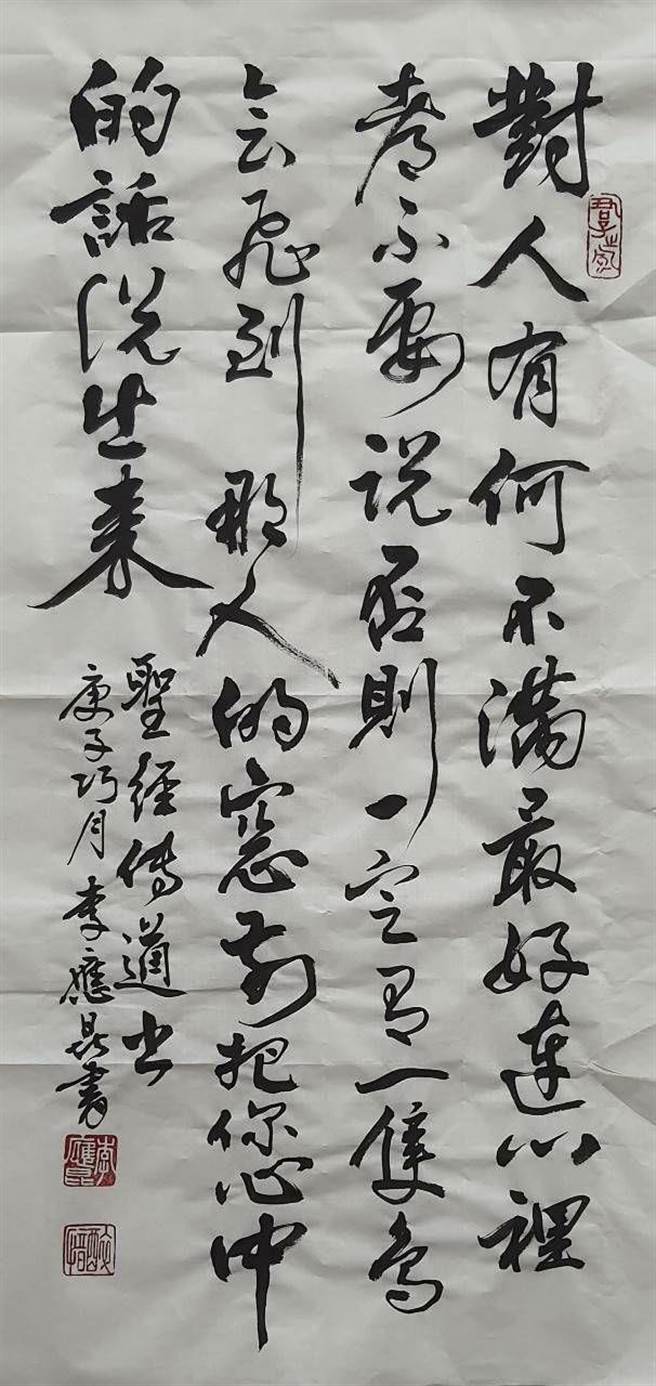 對人有何不滿最好連心裡
都不要說否則一定有一隻鳥
會飛到那人的窓前把你心中
的話說出來
聖經傳道書
庚子巧月李應昆書
李應昆